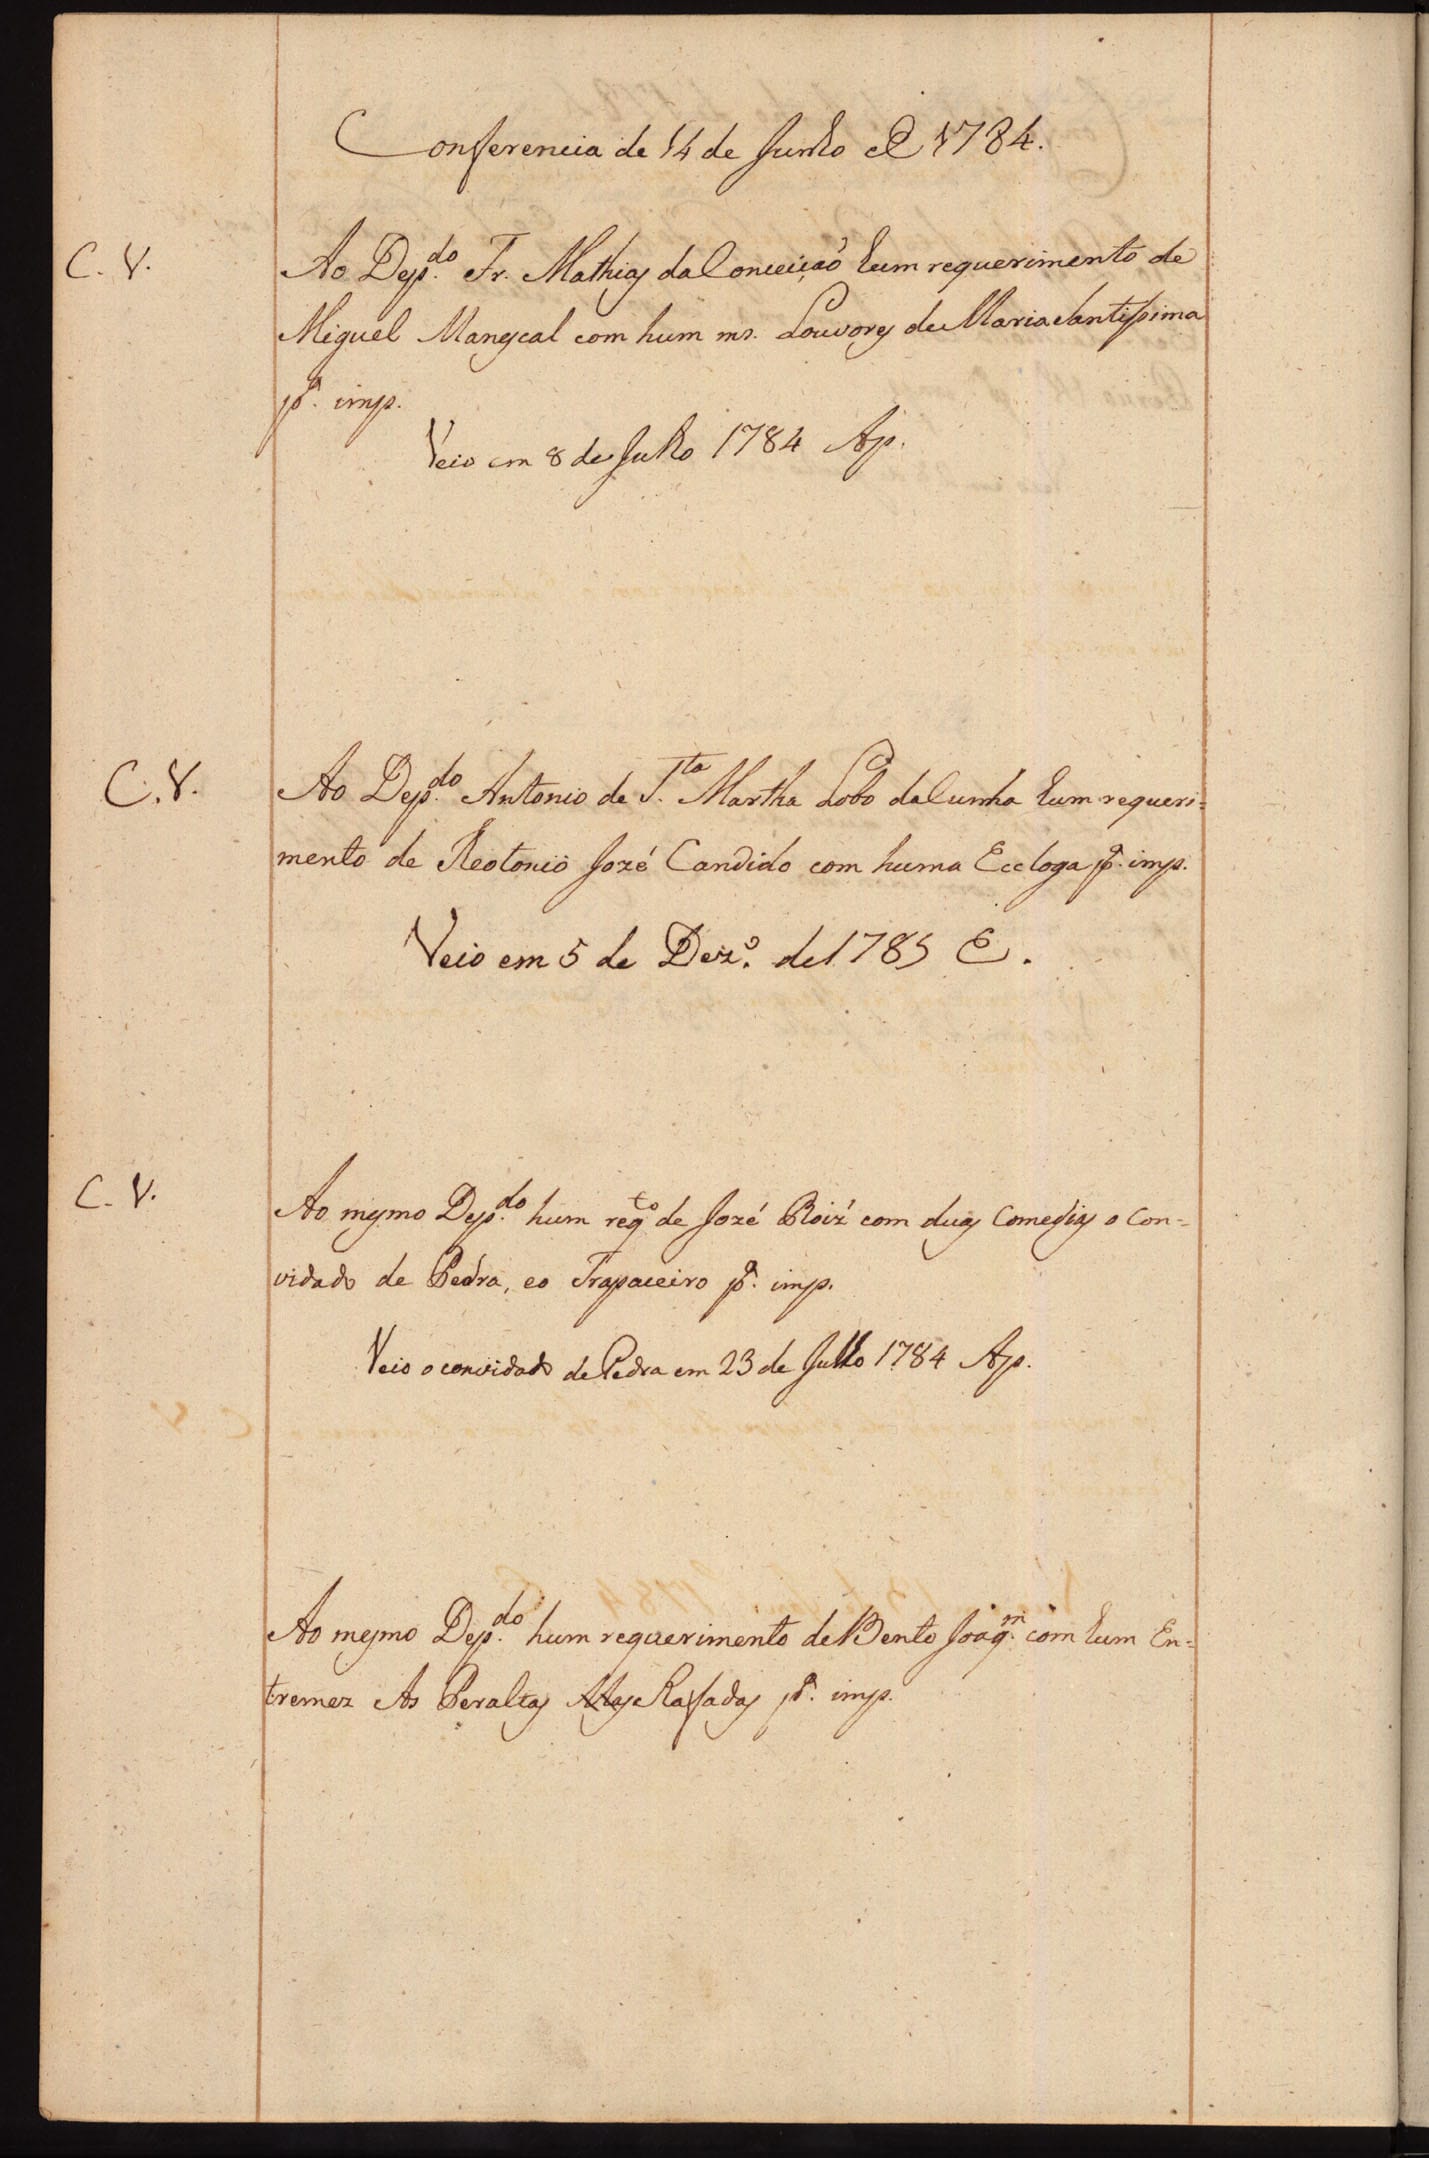 Conferencia de 14 de Junho de 1784.
C. V.
Ao Dep.do Fr. Mathias da Conceição hum requerimento de
Miguel Manescal com hum ms. Louvores de Maria Santissima
p.a imp.
Veio em 8 de Julho 1784 Ap.
C. V.
Ao Dep.do Antonio de S.ta Martha Lobo da Cunha hum requeri=
mento de Theotonio Jozé Candido com huma Eccloga p.a imp.
Veio em 5 de Dez.o de 1785 E.
C. V.
Ao mesmo Dep.do hum reqto de Jozé Roiz com duas Comedias o Con=
vidado de Pedra, eo Trapaceiro p.a imp.
Veio o convidado de Pedra em 23 de Julho 1784 Ap.
Ao mesmo Dep.do hum requerimento de Bento Joaq.m com hum En=
tremez As Peraltas Malasadas p.a imp.